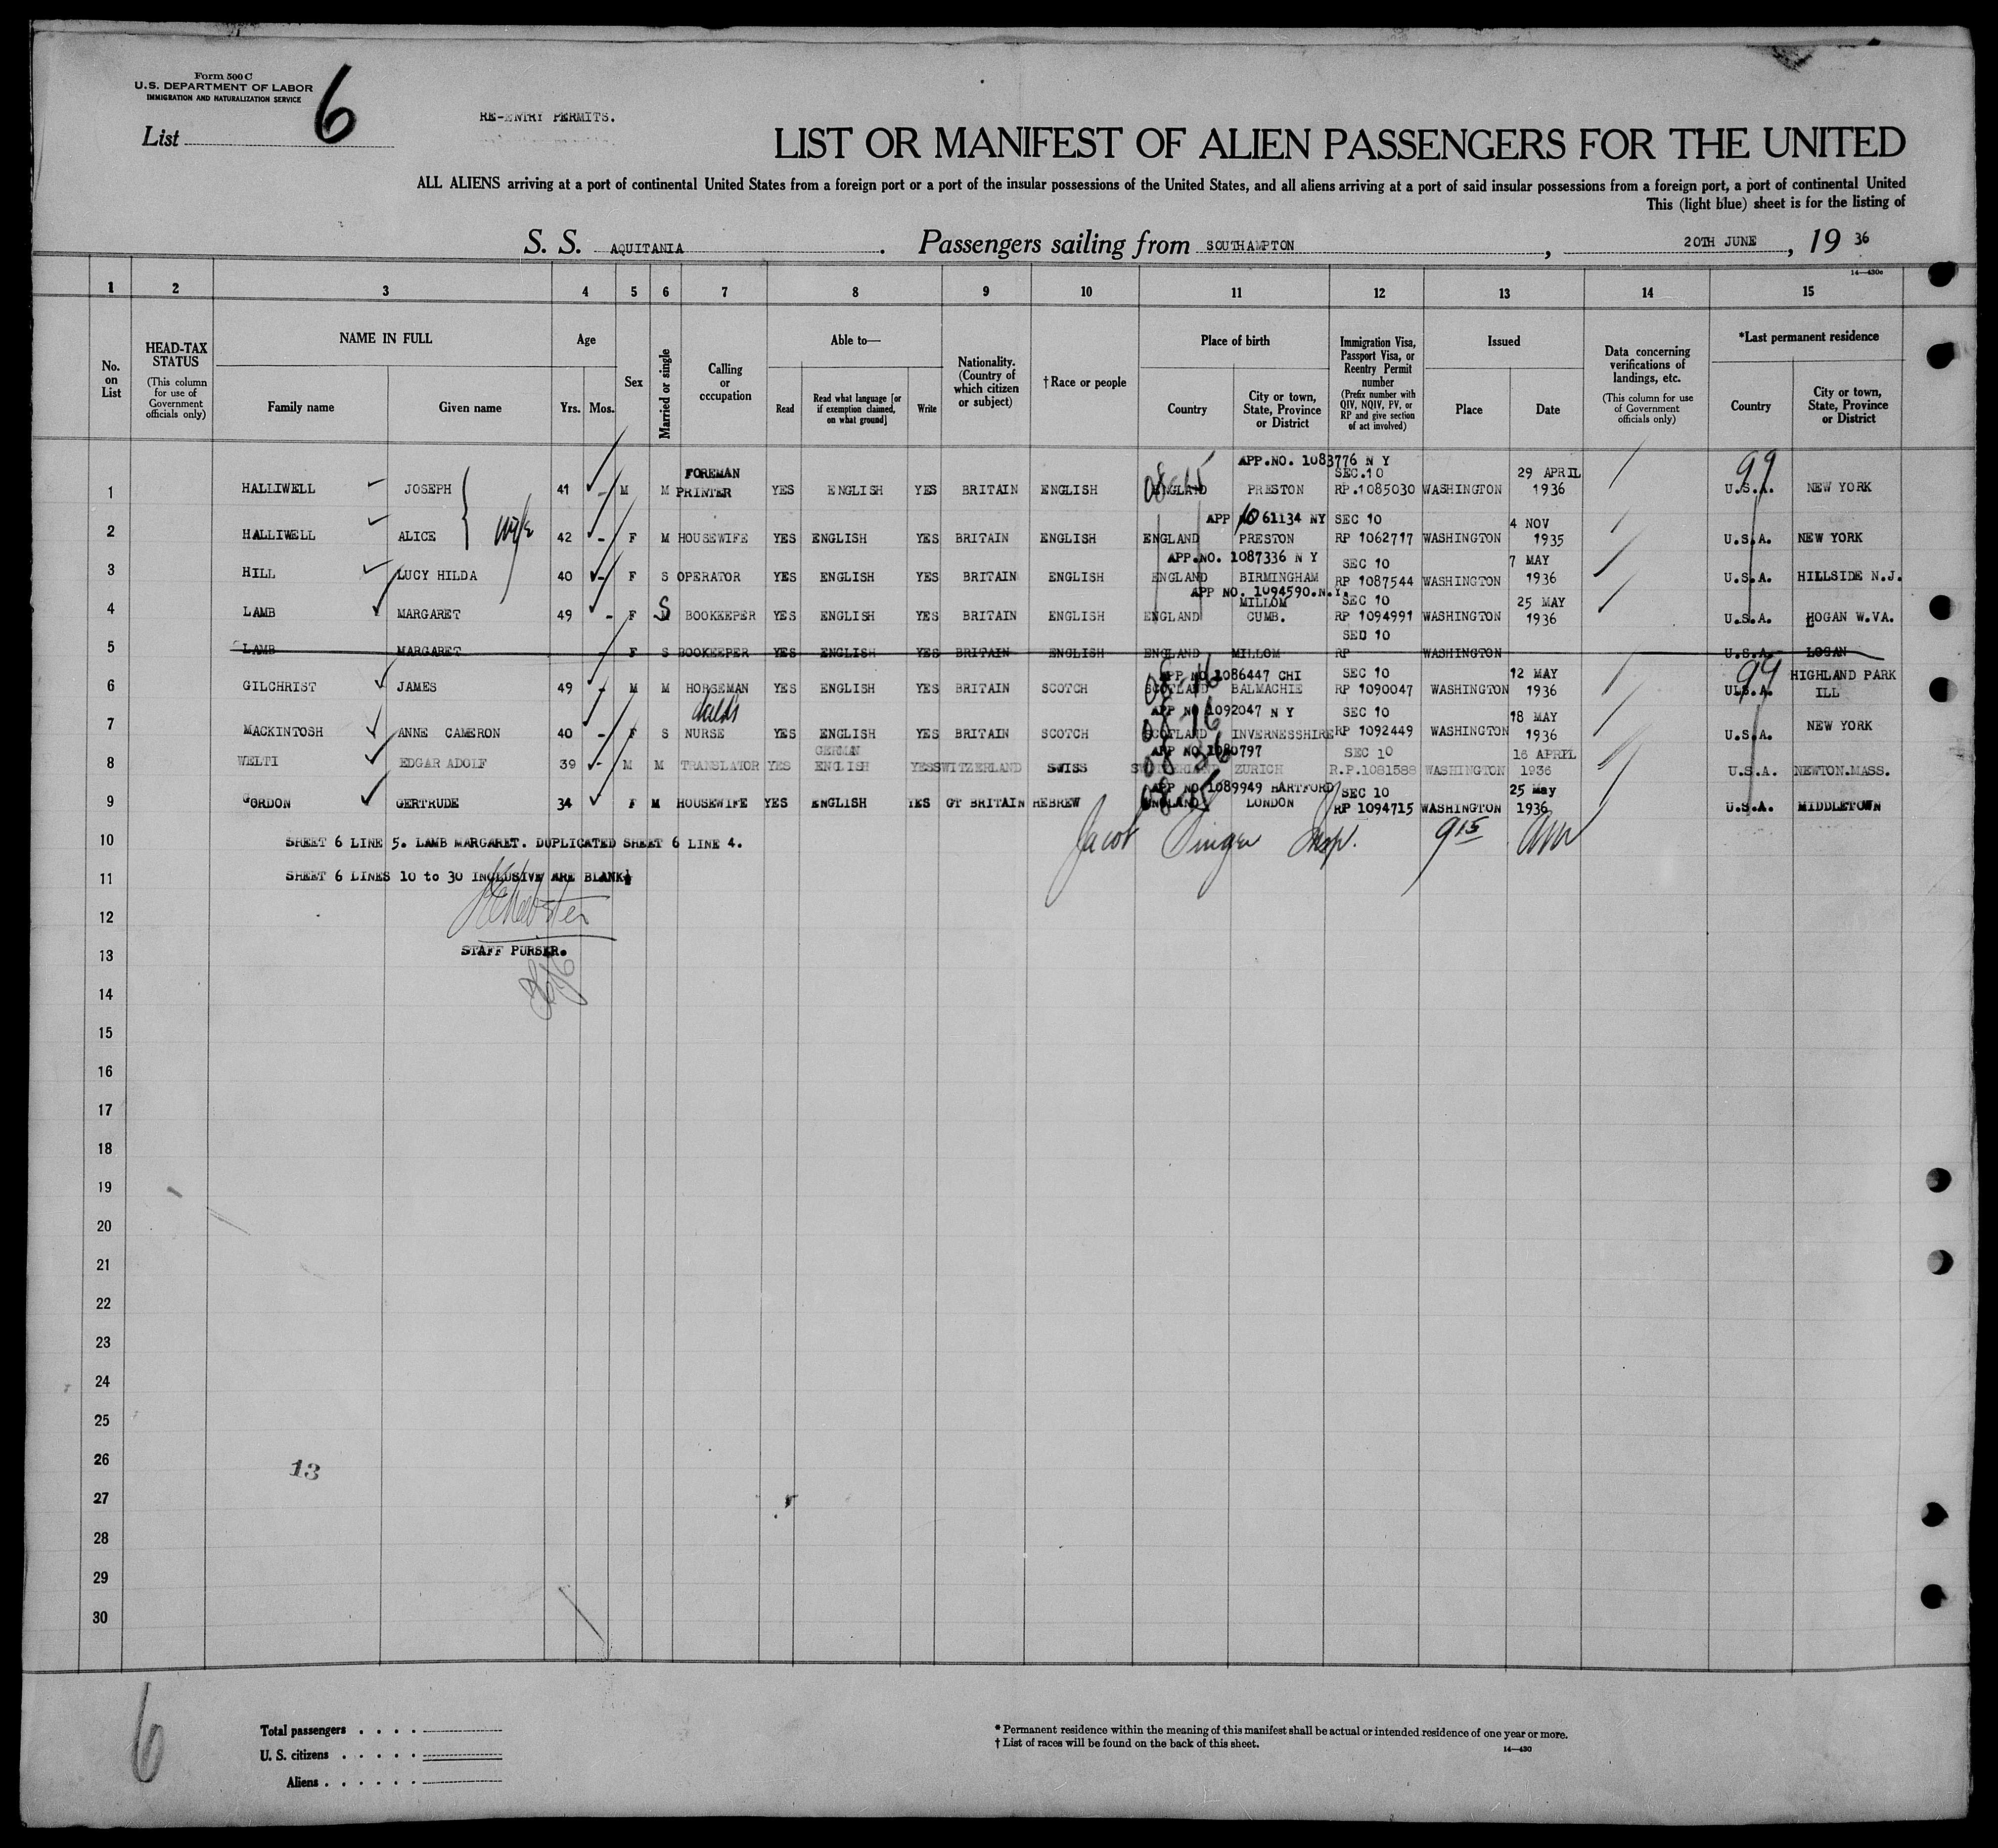 Form 500 C
U.S. DEPARTMENT OF LABOR
IMMIGRATION AND NATURALIZATION SERVICE
List 6
RE-ENTRY PERMITS.
LIST OR MANIFEST OF ALIEN PASSENGERS FOR THE UNITED
ALL ALIENS arriving at a port of continental United States from a foreign port or a port of the insular possessions of the United States, and all aliens arriving at a port of said insular possessions from a foreign port, a port of continental United
This (light blue) sheet is for the listing of
S. S. AQUITANIA. Passengers sailing from SOUTHAMPTON, 20TH JUNE, 19 36
14—430c
1 2 3 4 5 6 7 8 9 10 11 12 13 14 15
No. on List
HEAD-TAX STATUS (This column for use of Government officials only)
NAME IN FULL
Family name Given name
Age
Yrs. Mos.
Sex
Married or single
Calling or occupation
Able to—
Read Read what language [or if exemption claimed, on what ground] Write
Nationality. (Country of which citizen or subject)
†Race or people
Place of birth
Country City or town, State, Province or District
Immigration Visa, Passport Visa, or Reentry Permit number (Prefix number with QIV, NQIV, PV, or RP and give section of act involved)
Issued
Place Date
Data concerning verifications of landings, etc. (This column for use of Government officials only)
*Last permanent residence
Country City or town, State, Province or District
APP.NO. 1083776 N Y
FOREMAN SEC.10 29 APRIL 99
1 HALLIWELL JOSEPH 41 - M M PRINTER YES ENGLISH YES BRITAIN ENGLISH ENGLAND PRESTON RP.1085030 WASHINGTON 1936 U.S.A. NEW YORK
wife
APP NO 61134 NY SEC 10 4 NOV
2 HALLIWELL ALICE 42 - F M HOUSEWIFE YES ENGLISH YES BRITAIN ENGLISH ENGLAND PRESTON RP 1062717 WASHINGTON 1935 U.S.A. NEW YORK
APP.NO. 1087336 N Y SEC 10 7 MAY
3 HILL LUCY HILDA 40 - F S OPERATOR YES ENGLISH YES BRITAIN ENGLISH ENGLAND BIRMINGHAM RP 1087544 WASHINGTON 1936 U.S.A. HILLSIDE N.J.
APP NO. 1094590.N.Y.
S MILLOM SEC 10 25 MAY
4 LAMB MARGARET 49 - F M BOOKKEEPER YES ENGLISH YES BRITAIN ENGLISH ENGLAND CUMB. RP 1094991 WASHINGTON 1936 U.S.A. HOGAN W.VA.
SEC 10
5 LAMB MARGARET - F S BOOKKEEPER YES ENGLISH YES BRITAIN ENGLISH ENGLAND MILLOM RP WASHINGTON U.S.A. LOGAN
APP NO 1086447 CHI SEC 10 12 MAY 99 HIGHLAND PARK
6 GILCHRIST JAMES 49 - M M HORSEMAN YES ENGLISH YES BRITAIN SCOTCH SCOTLAND BALMACHIE RP 1090047 WASHINGTON 1936 U.S.A. ILL
child's APP NO 1092047 N Y SEC 10 18 MAY
7 MACKINTOSH ANNE CAMERON 40 - F S NURSE YES ENGLISH YES BRITAIN SCOTCH SCOTLAND INVERNESSHIRE RP 1092449 WASHINGTON 1936 U.S.A. NEW YORK
GERMAN APP NO 1080797 SEC 10 16 APRIL
8 WELTI EDGAR ADOLF 39 - M M TRANSLATOR YES ENGLISH YES SWITZERLAND SWISS SWITZERLAND ZURICH R.P.1081588 WASHINGTON 1936 U.S.A. NEWTON.MASS.
APP NO 1089949 HARTFORD SEC 10 25 May
9 GORDON GERTRUDE 34 F M HOUSEWIFE YES ENGLISH YES GT BRITAIN HEBREW ENGLAND LONDON RP 1094715 WASHINGTON 1936 U.S.A. MIDDLETOWN
10 SHEET 6 LINE 5. LAMB MARGARET. DUPLICATED SHEET 6 LINE 4.
Jacob Singer Insp. 9 15 am
11 SHEET 6 LINES 10 to 30 INCLUSIVE ARE BLANK
12
13 STAFF PURSER.
14
15
16
17
18
19
20
21
22
23
24
25
26 13
27
28
29
30
6
Total passengers
U. S. citizens
Aliens
* Permanent residence within the meaning of this manifest shall be actual or intended residence of one year or more.
† List of races will be found on the back of this sheet.
14—430